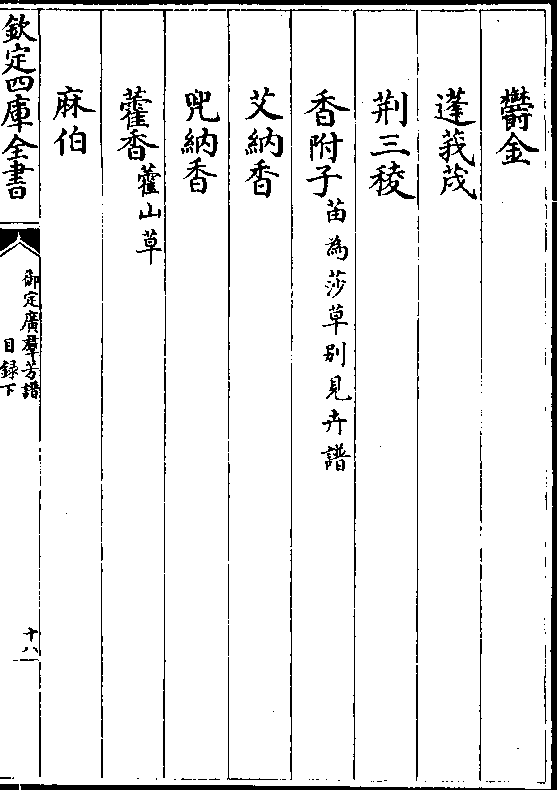 鬱金
蓬莪茂
荆三稜
香附子苗為莎草別見卉譜
艾納香
兜納香
藿香藿山草
麻伯
欽定四庫全書
御定廣羣芳譜
目録下
十八